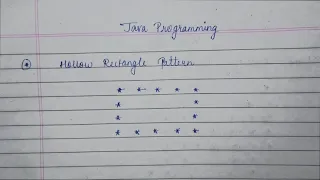 Java Programming
Hollow Rectangle Pattern
* * * * *
* *
* *
* * * * *